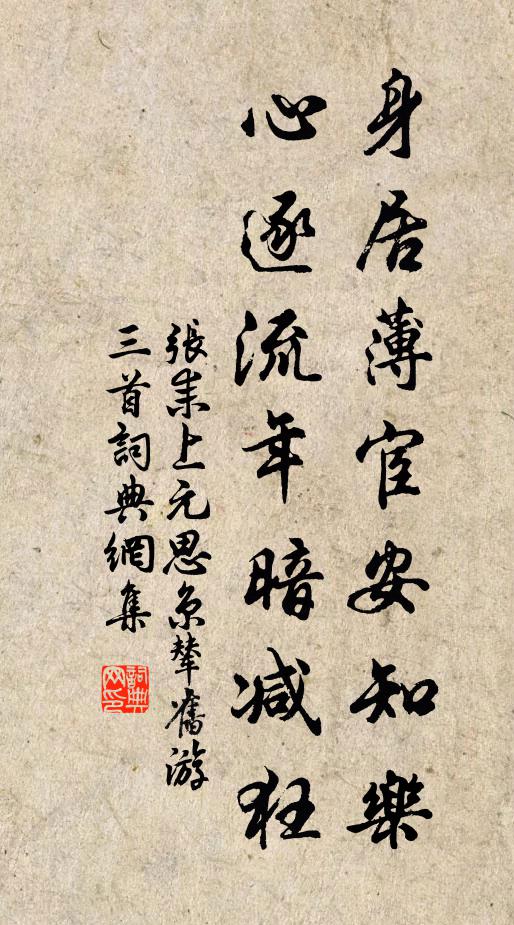 身居薄宦安知樂
心逐流年暗減狂
張耒上元思京輦舊游
三首詞典網集
詞典网印